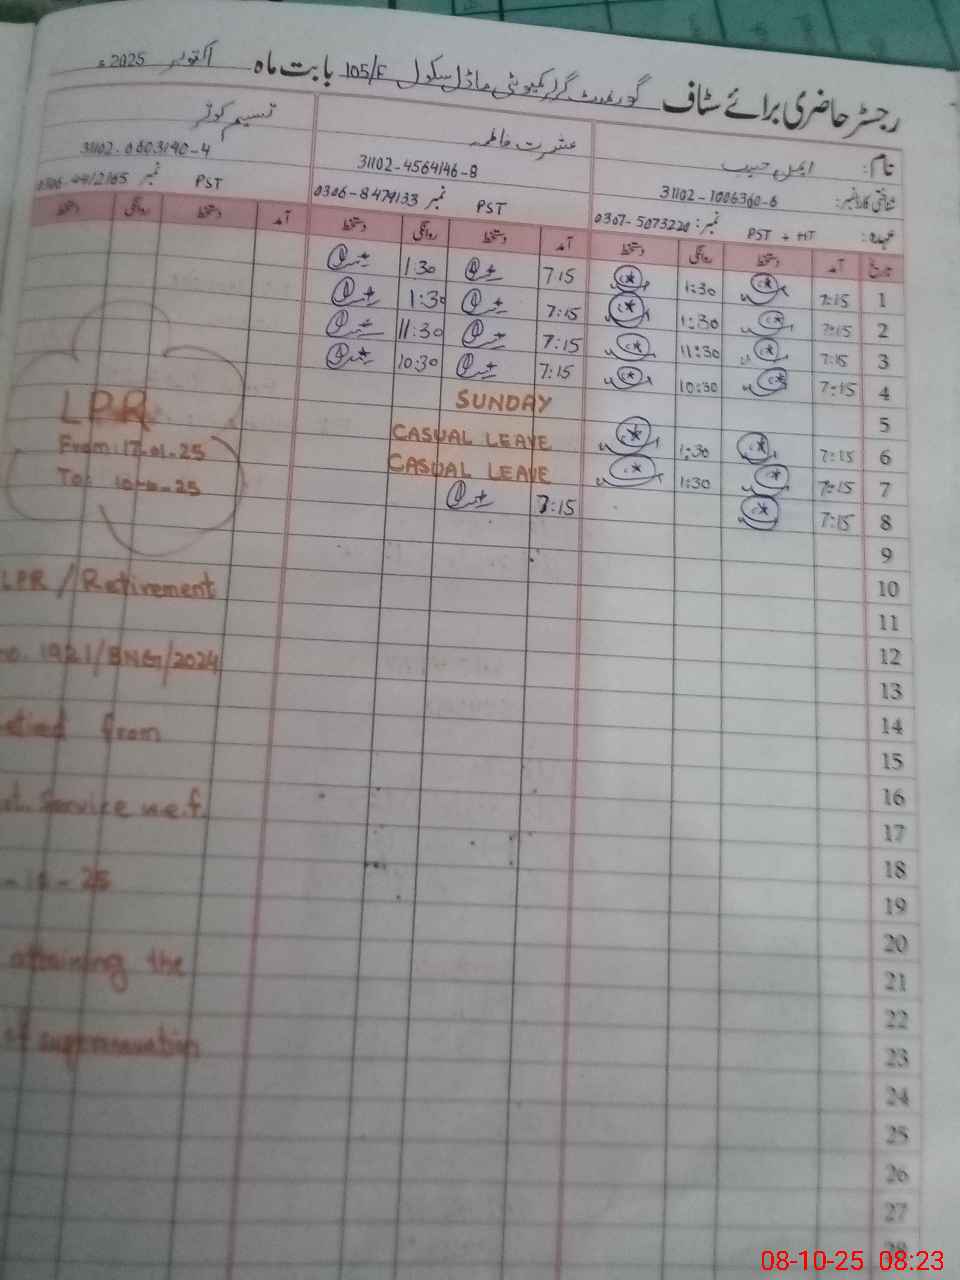 رجسٹر حاضری برائے سٹاف گورنمنٹ گرلز کمیونٹی ماڈل سکول 105/F بابت ماہ اکتوبر 2025ء
نام:
عشرت فاطمہ
تسیم کوثر
شناختی کارڈ نمبر: 31102-1006360-6
31102-4564146-8
31102-0603190-4
عہدہ: PST + HT نمبر: 0307-5073220
PST نمبر 0306-8479133
PST نمبر
تاریخ آمد دستخط روانگی دستخط آمد دستخط روانگی دستخط آمد دستخط روانگی دستخط
1 7:15 1:30 7:15 1:30
2 7:15 1:30 7:15 1:30
3 7:15 11:30 7:15 11:30
4 7:15 10:30 7:15 10:30
5 SUNDAY
6 7:15 1:30 CASUAL LEAVE
7 7:15 1:30 CASUAL LEAVE
8 7:15 7:15
9
10
11
12
13
14
15
16
17
18
19
20
21
22
23
24
25
26
27
28
LPR
From: 17-01-25
To:
LPR / Retirement
no. 1921/BNG/2024
from
Service w.e.f.
attaining the
of superannuation
08-10-25 08:23